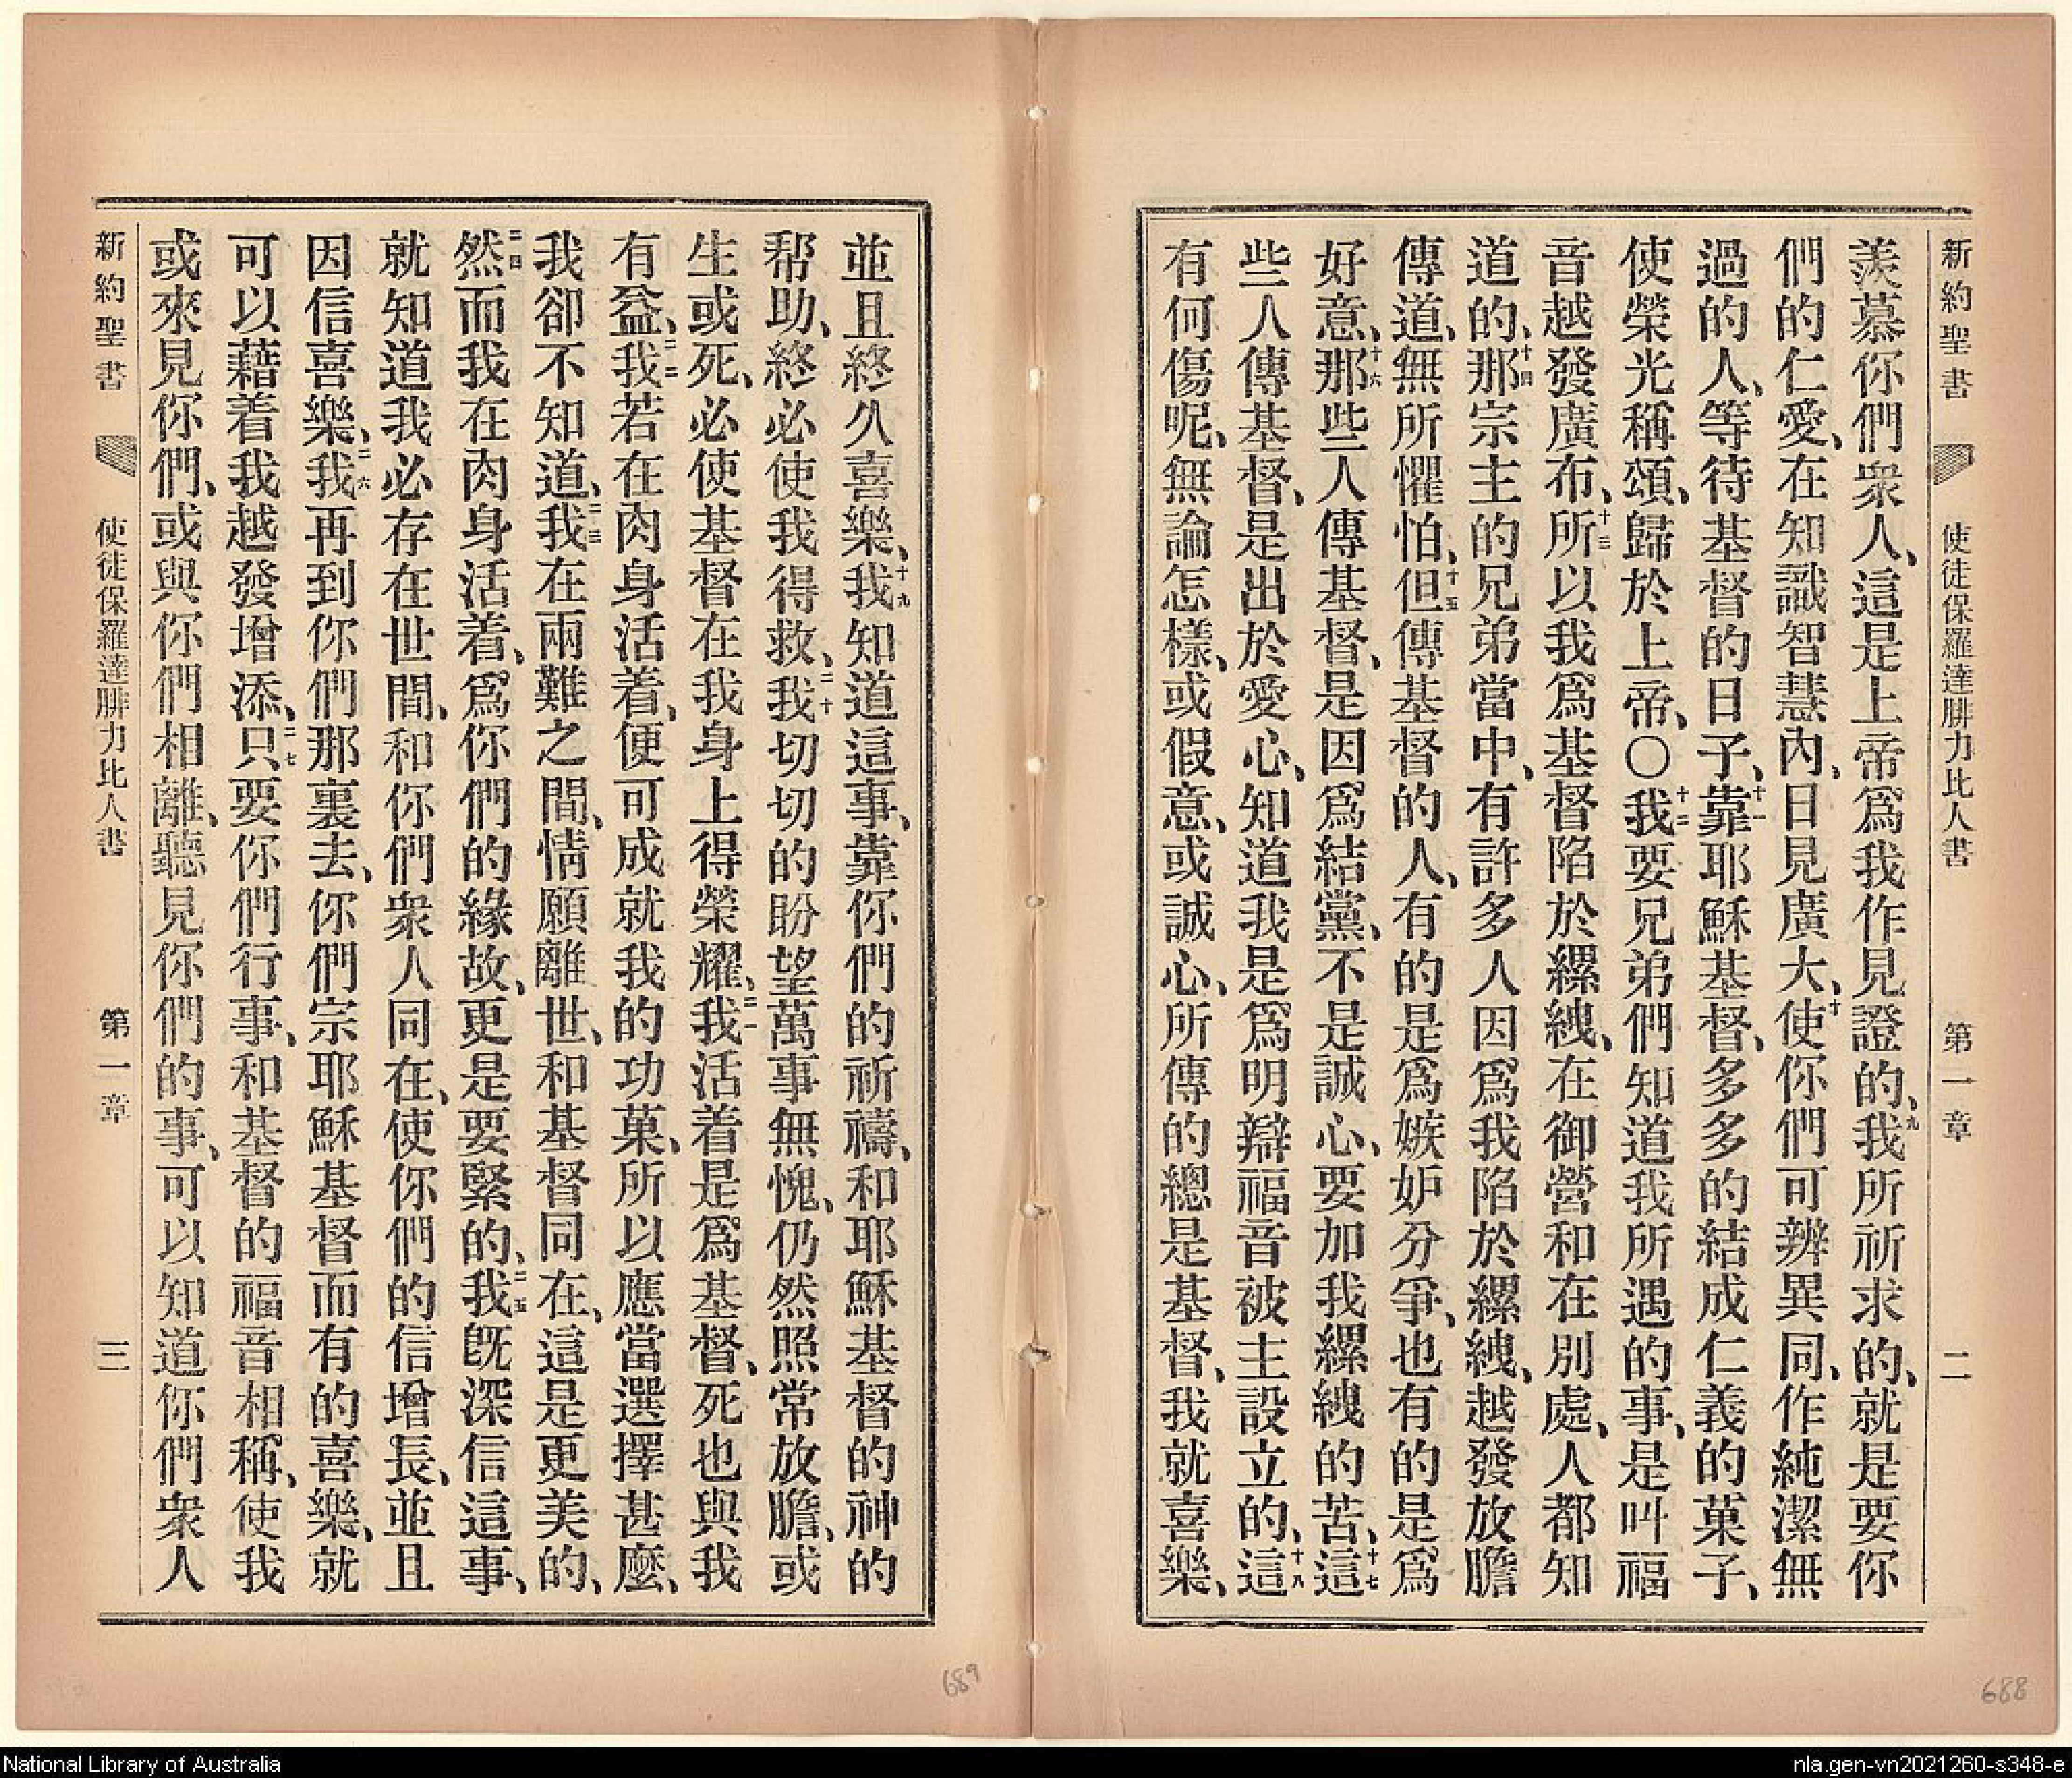 新約聖書 使徒保羅達腓力比人書 第一章 二
羨慕你們衆人、這是上帝爲我作見證的、九我所祈求的、就是要你
們的仁愛、在知識智慧內、日見廣大、十使你們可辨異同、作純潔無
過的人、等待基督的日子、十一靠耶穌基督、多多的結成仁義的菓子、
使榮光稱頌、歸於上帝、〇十二我要兄弟們知道我所遇的事、是叫福
音越發廣布、十三所以我爲基督陷於縲絏、在御營和在別處、人都知
道的、十四那宗主的兄弟當中、有許多人因爲我陷於縲絏、越發放膽
傳道、無所懼怕、十五但傳基督的人、有的是爲嫉妒分爭、也有的是爲
好意、十六那些人傳基督、是因爲結黨、不是誠心、要加我縲絏的苦、十七這
些人傳基督、是出於愛心、知道我是爲明辯福音被主設立的、十八這
有何傷呢、無論怎樣、或假意、或誠心、所傳的總是基督、我就喜樂、
並且終久喜樂、十九我知道這事、靠你們的祈禱、和耶穌基督的神的
帮助、終必使我得救、二十我切切的盼望萬事無愧、仍然照常放膽、或
生或死、必使基督在我身上得榮耀、二一我活着是爲基督、死也與我
有益、二二我若在肉身活着、便可成就我的功菓、所以應當選擇甚麼、
我卻不知道、二三我在兩難之間、情願離世、和基督同在、這是更美的、
二四然而我在肉身活着、爲你們的緣故、更是要緊的、二五我旣深信這事、
就知道我必存在世間、和你們衆人同在、使你們的信增長、並且
因信喜樂、二六我再到你們那裏去、你們宗耶穌基督而有的喜樂、就
可以藉着我越發增添、二七只要你們行事、和基督的福音相稱、使我
或來見你們、或與你們相離、聽見你們的事、可以知道你們衆人
新約聖書 使徒保羅達腓力比人書 第一章 三
689
688
National Library of Australia
nla.gen-vn2021260-s348-e